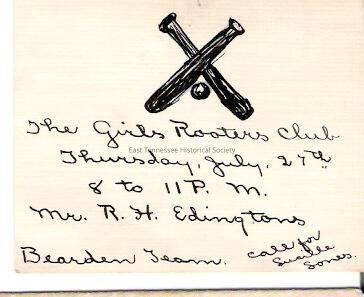 The Girls Rooters Club
East Tennessee Historical Society
Thursday, July, 27th
8 to 11 P. M.
Mr. R. H. Edingtons
Bearden Team.
Call for
Lucille
Jones.